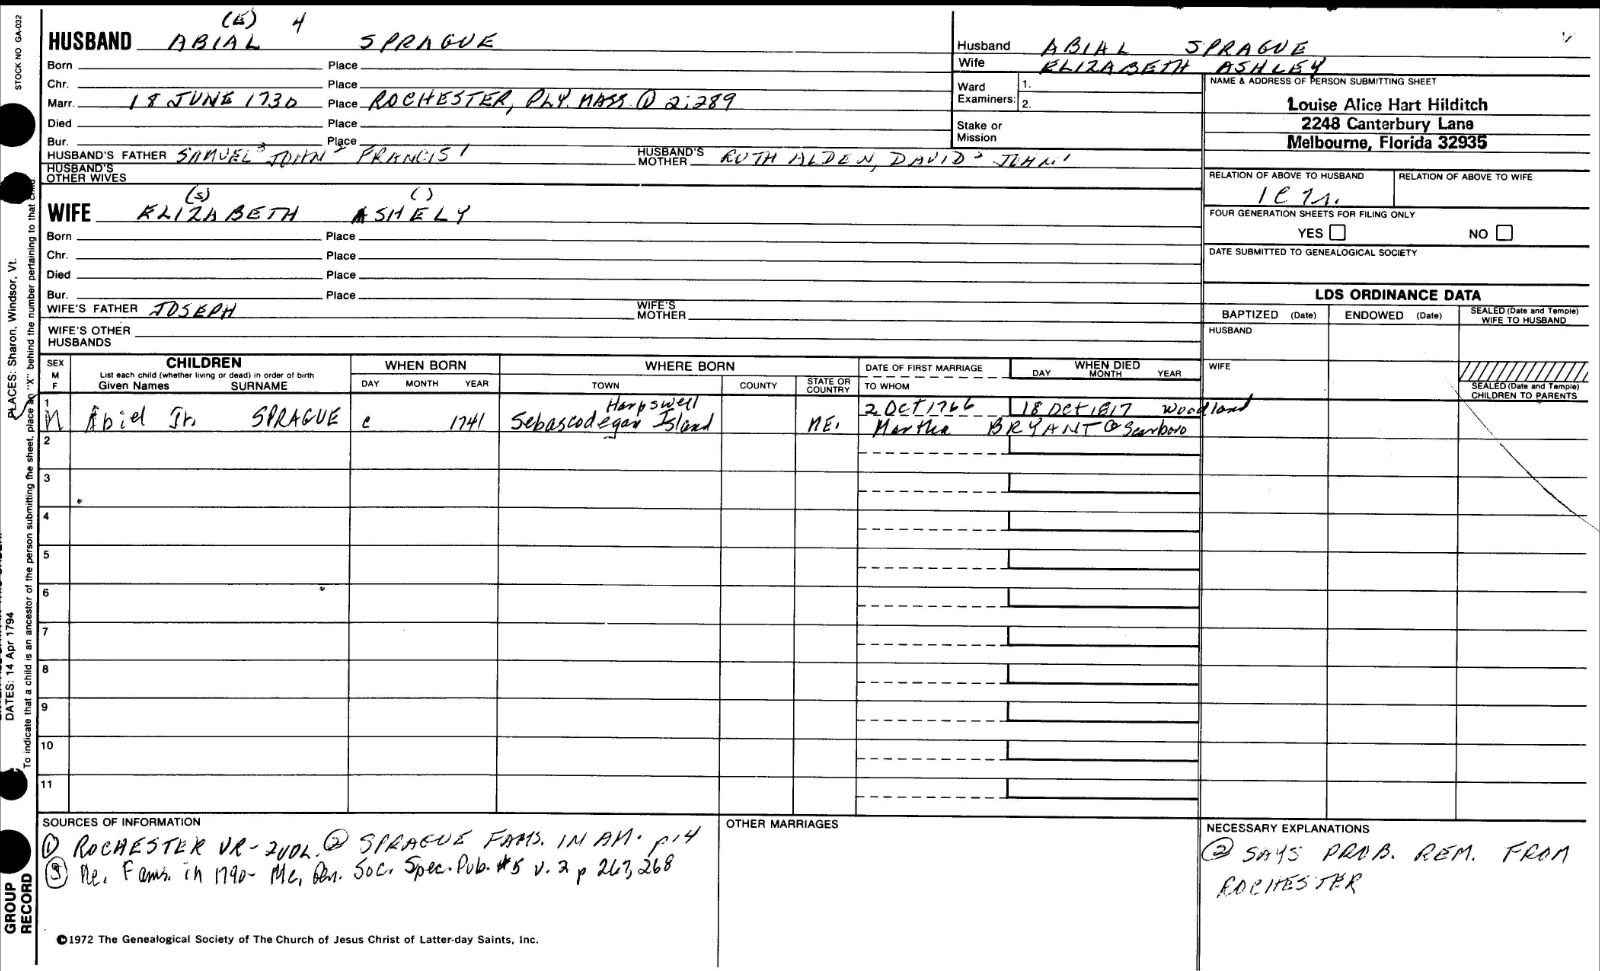 STOCK NO GA-032
PLACES: Sharon, Windsor, Vt.
DATES: 14 Apr 1794
To indicate that a child is an ancestor of the person submitting the sheet, place an "X" behind the number pertaining to that child.
GROUP
RECORD
4
HUSBAND ABIAL SPRAGUE
Born Place
Chr. Place
Marr. 18 JUNE 1730 Place ROCHESTER, PLY. MASS. ① 2:289
Died Place
Bur. Place
HUSBAND'S FATHER SAMUEL³ JOHN² FRANCIS¹ HUSBAND'S MOTHER RUTH ALDEN, DAVID² JOHN¹
HUSBAND'S OTHER WIVES
(s) ( )
WIFE ELIZABETH ASHELY
Born Place
Chr. Place
Died Place
Bur. Place
WIFE'S FATHER JOSEPH WIFE'S MOTHER
WIFE'S OTHER HUSBANDS
Husband ABIAL SPRAGUE
Wife ELIZABETH ASHLEY
Ward Examiners: 1.
2.
Stake or Mission
NAME & ADDRESS OF PERSON SUBMITTING SHEET
Louise Alice Hart Hilditch
2248 Canterbury Lane
Melbourne, Florida 32935
RELATION OF ABOVE TO HUSBAND RELATION OF ABOVE TO WIFE
FOUR GENERATION SHEETS FOR FILING ONLY
YES NO
DATE SUBMITTED TO GENEALOGICAL SOCIETY
LDS ORDINANCE DATA
BAPTIZED (Date) ENDOWED (Date) SEALED (Date and Temple) WIFE TO HUSBAND
HUSBAND
WIFE
SEALED (Date and Temple) CHILDREN TO PARENTS
SEX M F
CHILDREN
List each child (whether living or dead) in order of birth
Given Names SURNAME
WHEN BORN
DAY MONTH YEAR
WHERE BORN
TOWN COUNTY STATE OR COUNTRY
DATE OF FIRST MARRIAGE
TO WHOM
WHEN DIED
DAY MONTH YEAR
1 Harpswell 2 OCT 1766 18 OCT 1817 Woodland
M Abiel Jr. SPRAGUE c 1741 Sebascodegan Island ME. Martha BRYANT @ Scarboro
2
3
4
5
6
7
8
9
10
11
SOURCES OF INFORMATION
① ROCHESTER VR- 2VOL. ② SPRAGUE FAMS. IN AM. p14
③ Me. Fams. in 1790- Me. Gen. Soc. Spec. Pub. #5 v. 2 p 267, 268
OTHER MARRIAGES
NECESSARY EXPLANATIONS
② SAYS PROB. REM. FROM
ROCHESTER
©1972 The Genealogical Society of The Church of Jesus Christ of Latter-day Saints, Inc.